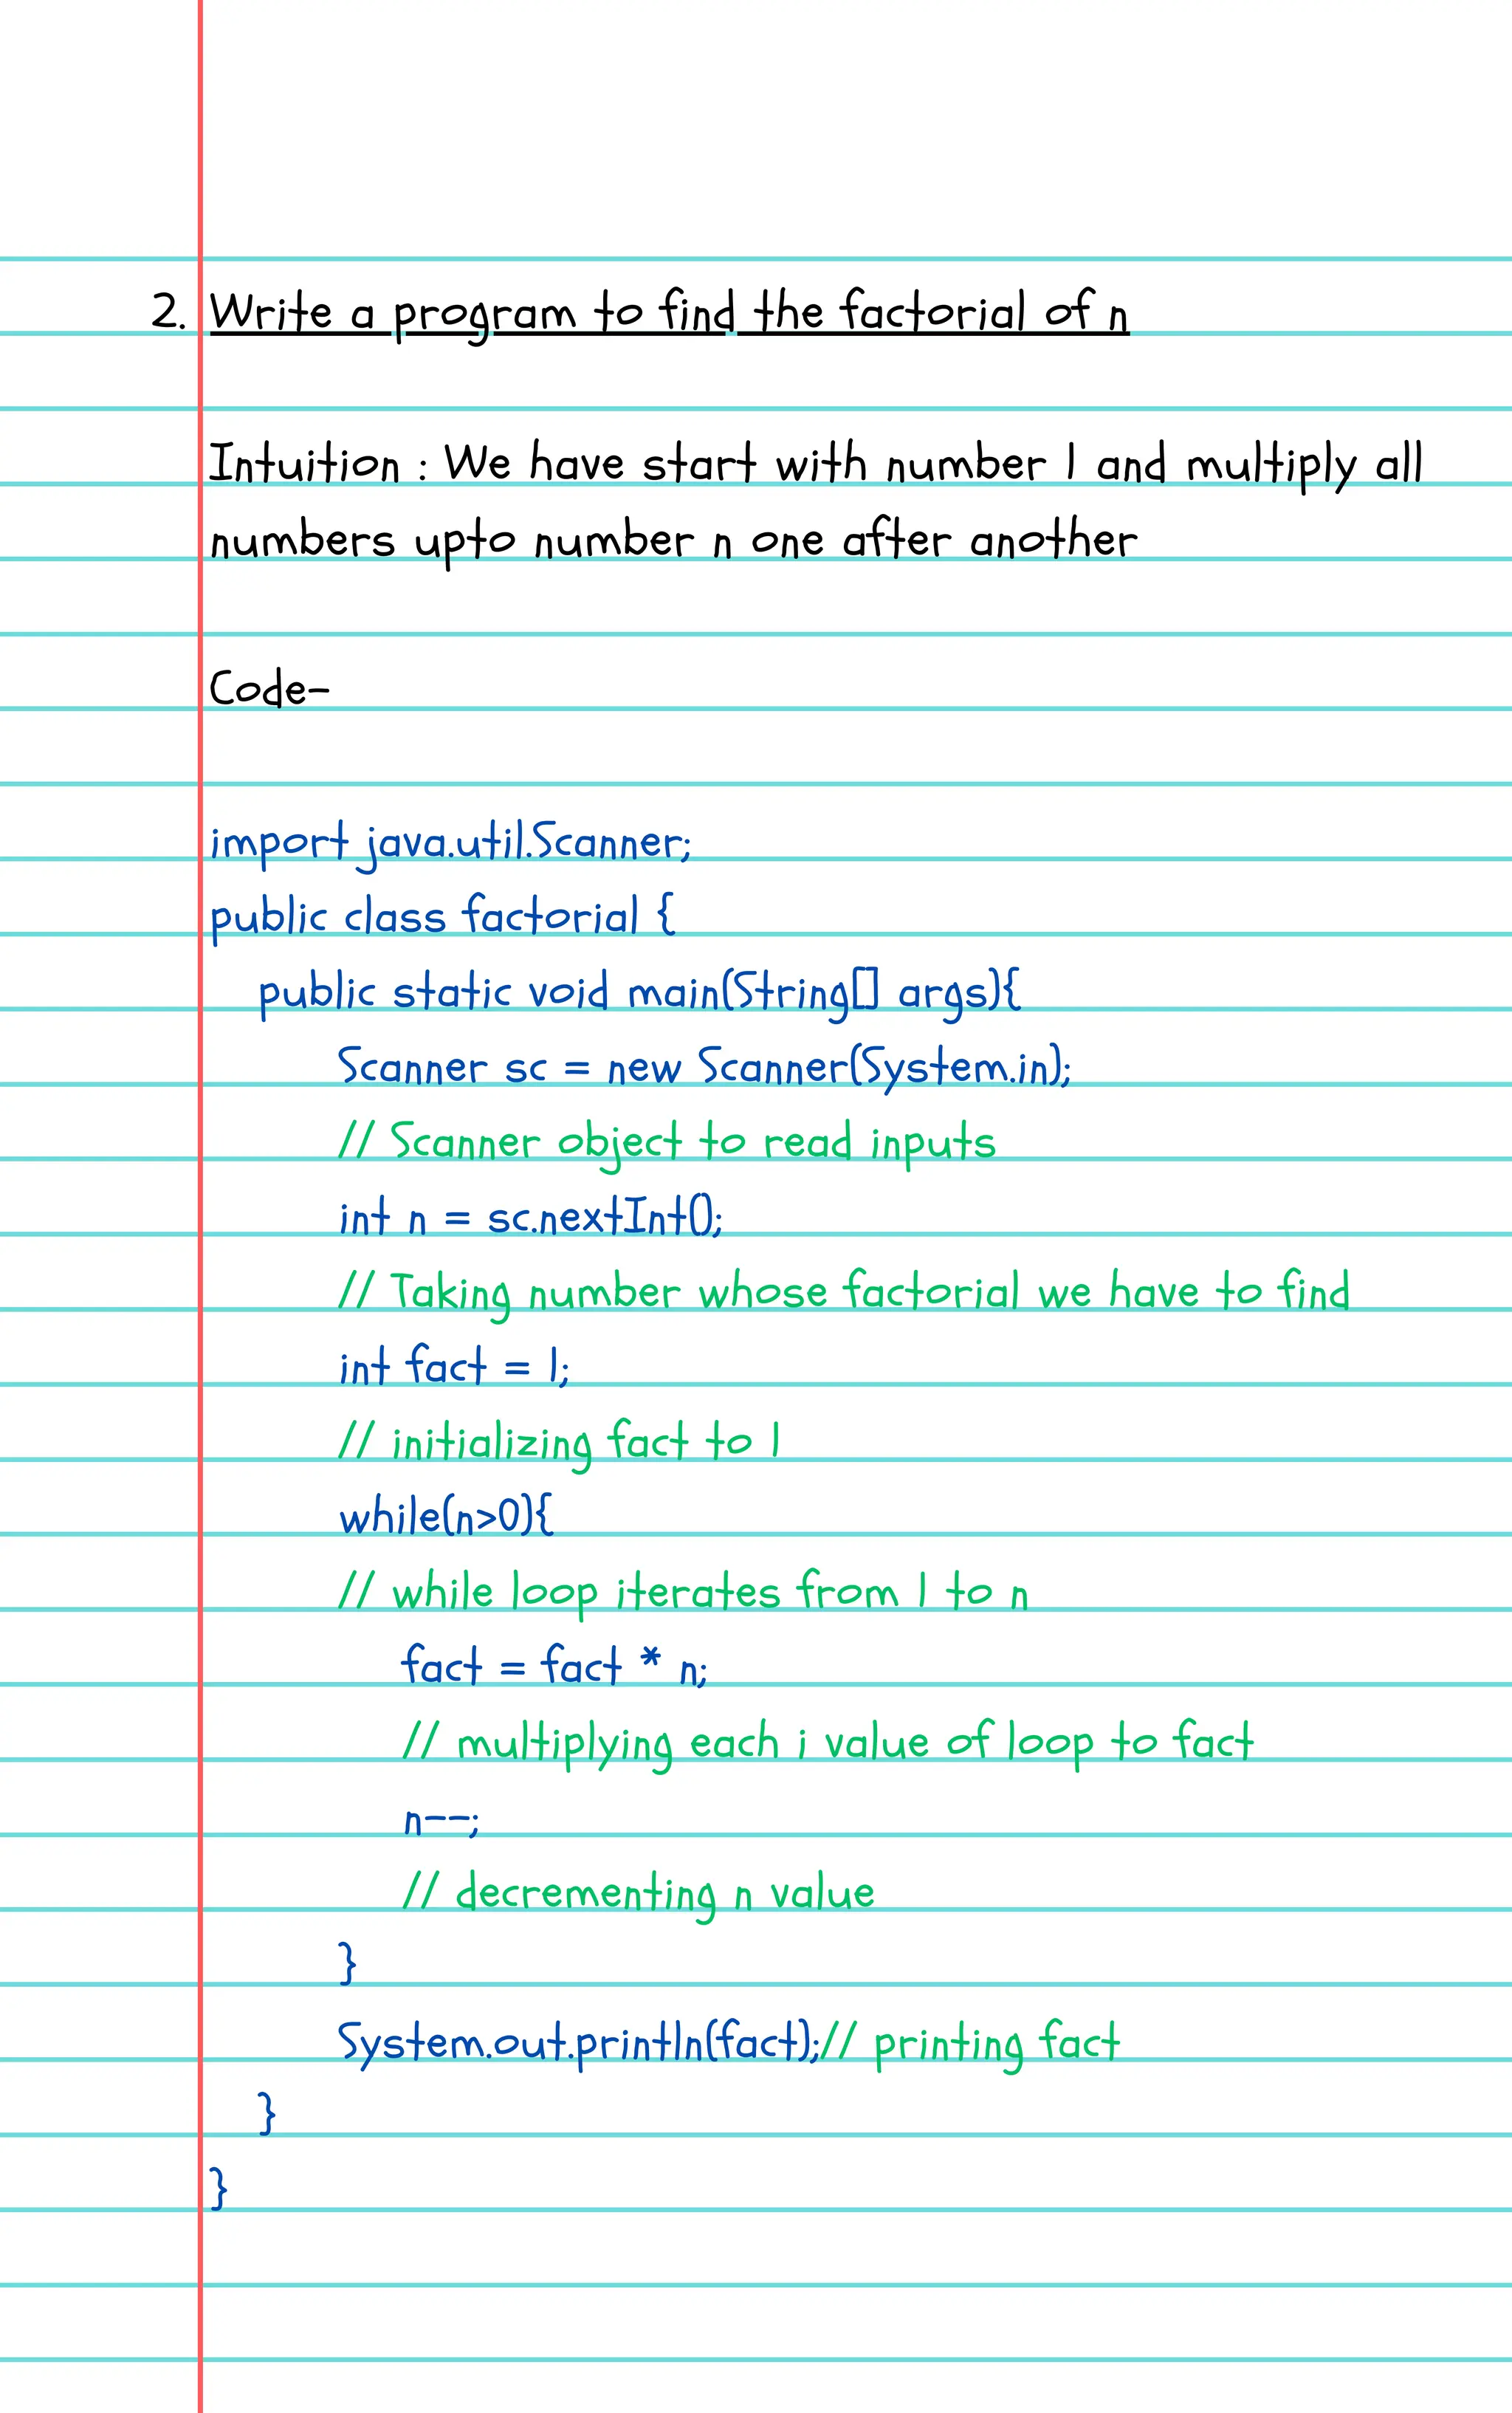 2. Write a program to find the factorial of n
Intuition : We have start with number 1 and multiply all
numbers upto number n one after another
Code-
import java.util.Scanner;
public class factorial {
public static void main(String[] args){
Scanner sc = new Scanner(System.in);
// Scanner object to read inputs
int n = sc.nextInt();
// Taking number whose factorial we have to find
int fact = 1;
// initializing fact to 1
while(n>0){
// while loop iterates from 1 to n
fact = fact * n;
// multiplying each i value of loop to fact
n--;
// decrementing n value
}
System.out.println(fact);// printing fact
}
}